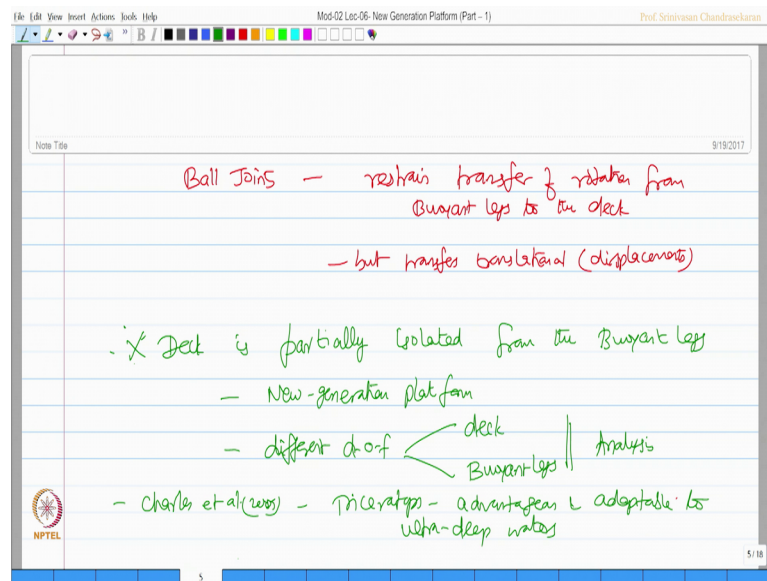 File Edit View Insert Actions Tools Help
Mod-02 Lec-06- New Generation Platform (Part – 1)
Prof. Srinivasan Chandrasekaran
B I
Note Title
9/19/2017
Ball Joins — restrain transfer of rotation from
Buoyant legs to the deck
— but transfers translational (displacements)
Deck is partially isolated from the Buoyant legs
— New-generation platform
— different d-o-f
deck
Buoyant legs
Analysis
— Charles et al (2005) — Triceratops — advantageous & adaptable to
ultra-deep waters
NPTEL
5 / 18
5